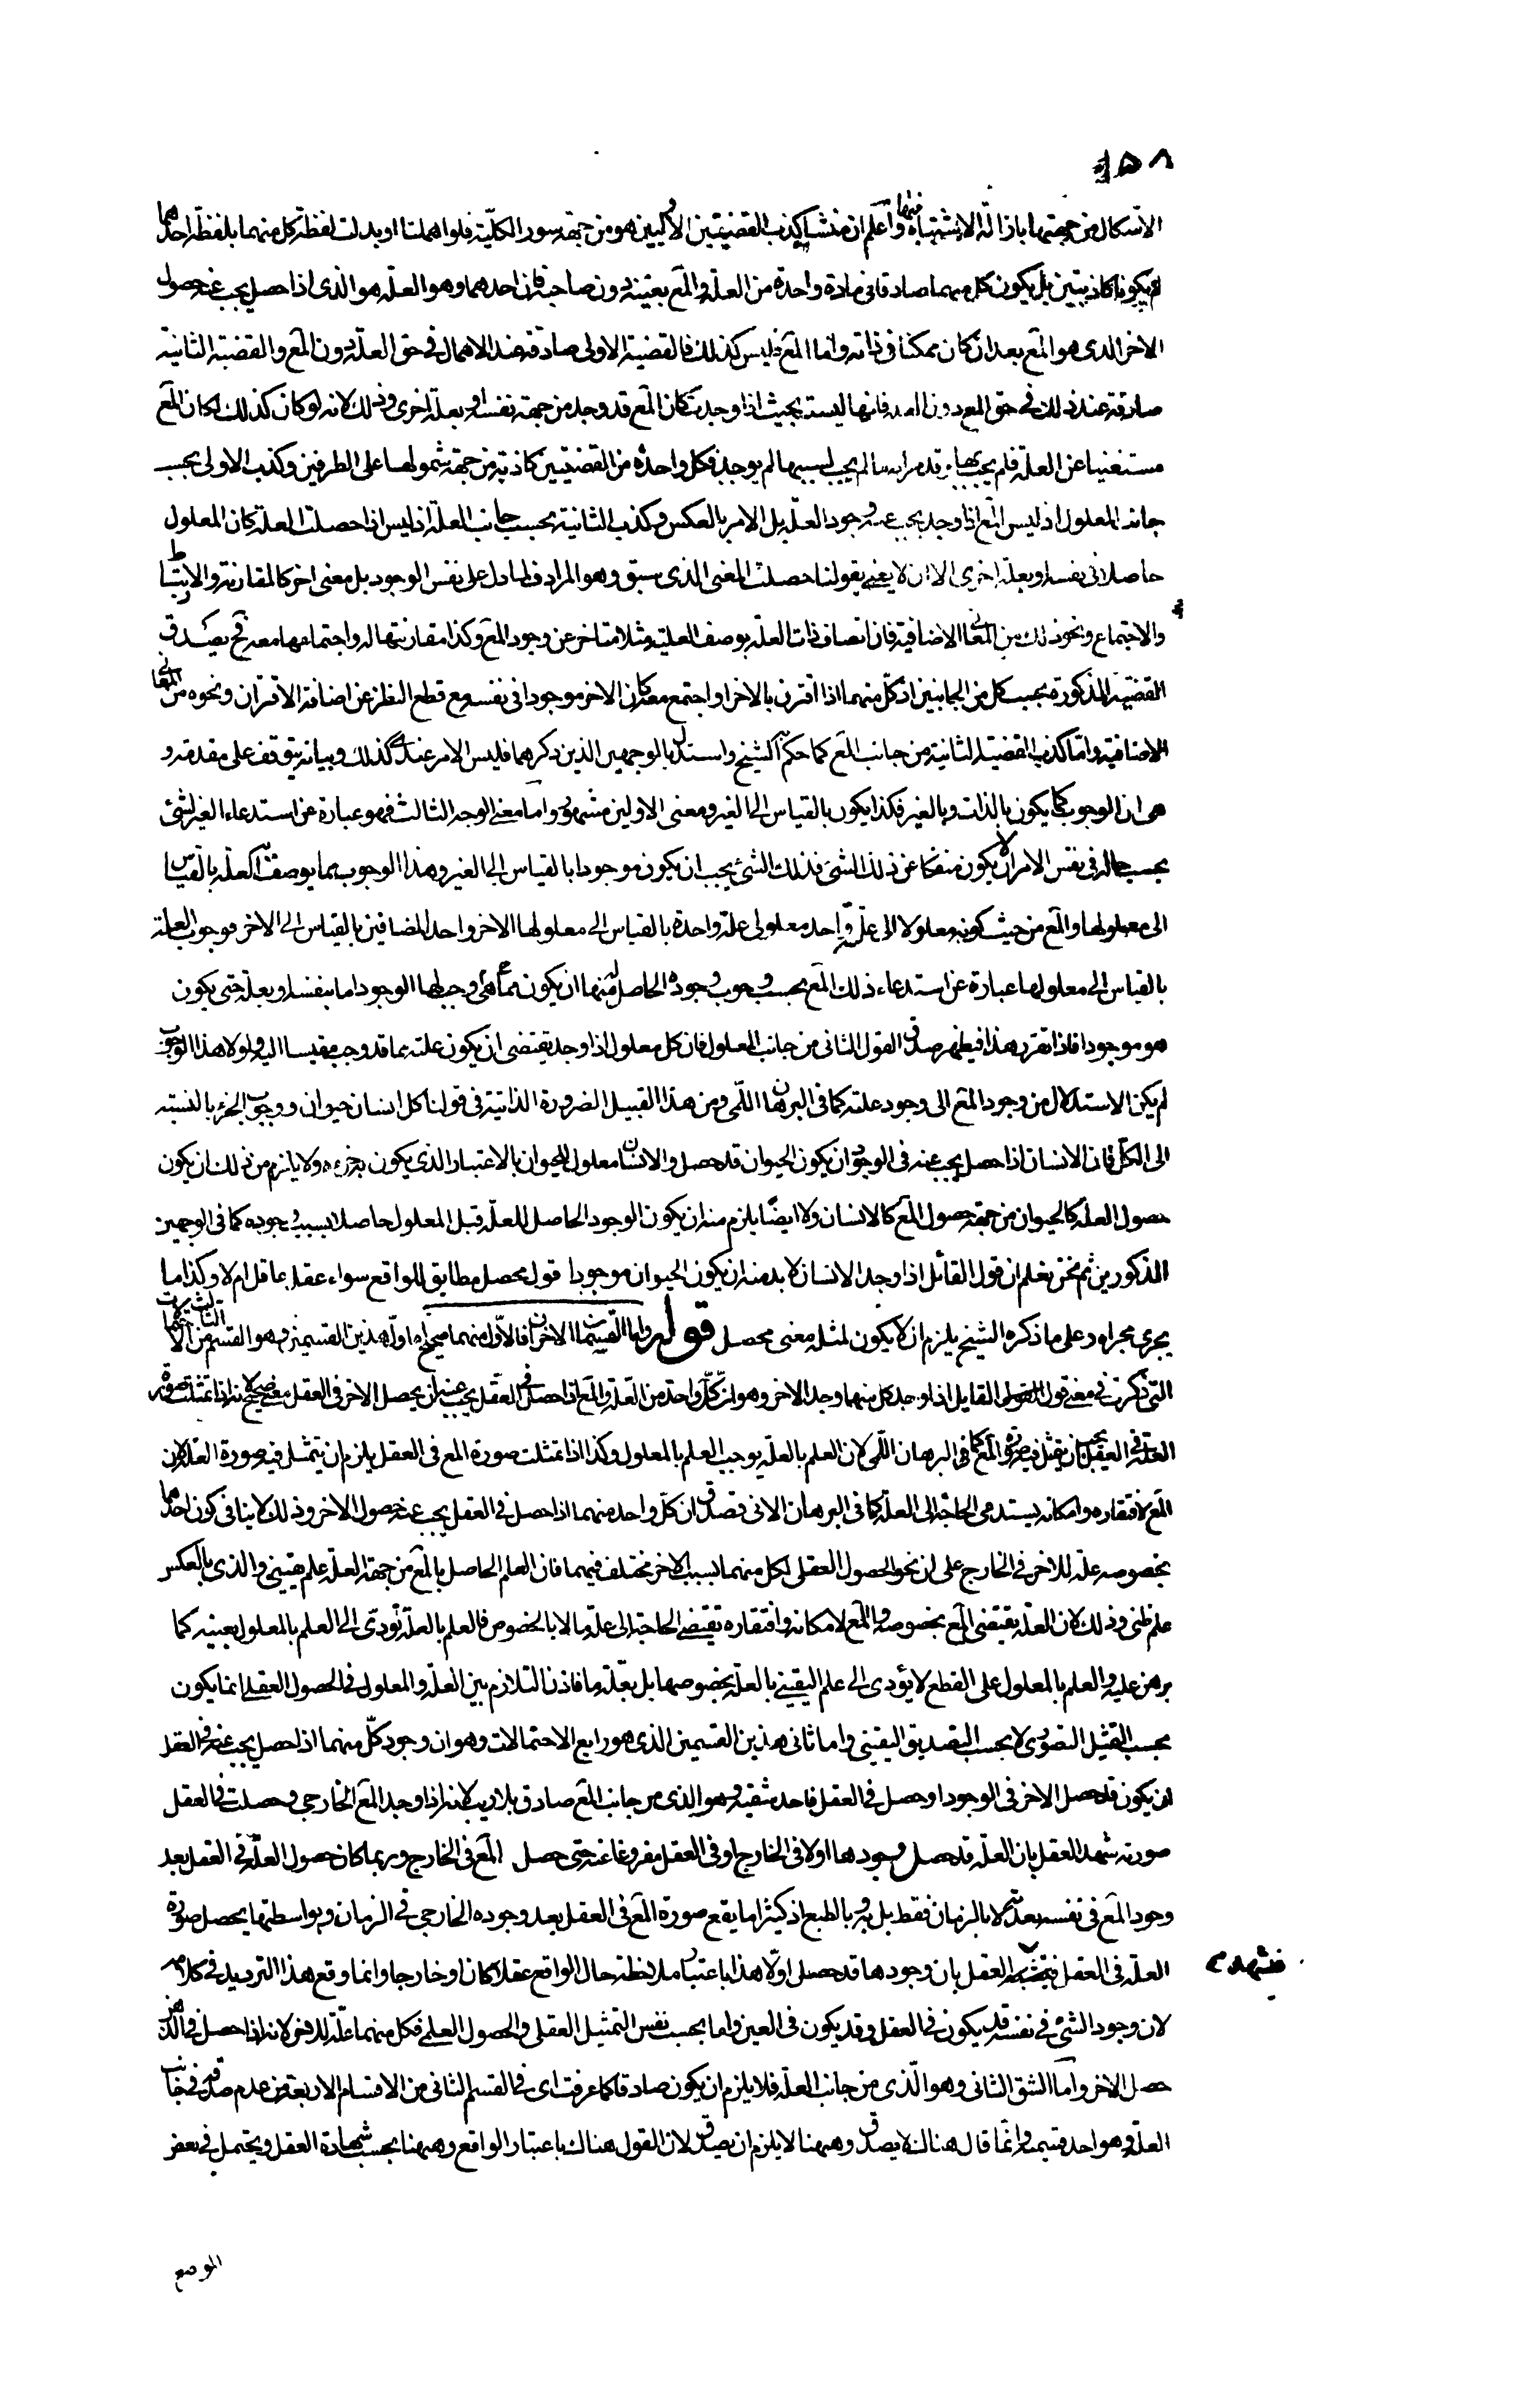 ١٥٨
الاشكال من جهتها بازالة الاشتباه فيها واعلم ان منشا كذب القضيتين الاوليين هو من جهة سور الكلية فلو اهملتا او بدلت لفظة كل منهما بلفظة احدهما
لم يكونا كاذبتين بل يكون كل منهما صادقا في مادة واحدة من العلة والمع بعينه دون صاحبه فان احدهما وهو العلة هو الذى اذا حصل يجب عنه حصول
الاخر الذى هو المع بعد ان كان ممكنا في ذاته واما المع فليس كذلك فالقضية الاولى صادقة عند الاهمال في حق العلة دون المع والقضية الثانية
صادقة عند ذلك في حق المع دون العلة فانها ليست بحيث اذا وجدت كان المع قد وجد من جهة نفسه او بعلة اخرى وذلك لانه لو كان كذلك لكان المع
مستغنيا عن العلة فلم يجب بها وقد مر انه ما لم يجب بسببها لم يوجد فكل واحدة من القضيتين كاذبة من جهة شمولها على الطرفين وكذب الاولى بحسب
جانب المعلول اذ ليس المع اذا وجد يجب عنه وجود العلة بل الامر بالعكس وكذب الثانية بحسب جانب العلة اذ ليس اذا حصلت العلة كان المعلول
حاصلا في نفسه او بعلة اخرى الا ان لا يعنى بقولنا حصلت المعنى الذى سبق وهو المرادف لما دل على نفس الوجود بل معنى اخر كالمقارنة والارتباط
والاجتماع ونحو ذلك من المعانى الاضافية فان اتصاف ذات العلة بوصف العلية مثلا متاخر عن وجود المع وكذا مقارنتها له واجتماعها معه فح يصدق
القضية المذكورة بحسب كل من الجانبين اذ كل منهما اذا اقترن بالاخر او اجتمع معه كان الاخر موجودا في نفسه مع قطع النظر عن اضافة الاقتران ونحوه من المعانى
الاضافية واما كذب القضية الثانية من جانب المع كما حكم الشيخ واستدل بالوجهين الذين ذكرهما فليس الامر عندى كذلك وبيانه يتوقف على مقدمة و
هى ان الوجوب كما يكون بالذات وبالغير فكذا يكون بالقياس الى الغير ومعنى الاولين مشهور واما معنى الوجه الثالث فهو عبارة عن استدعاء الغير لشئ
بحسب حاله في نفس الامر ان لا يكون منفكا عن ذلك الشئ فذلك الشئ يجب ان يكون موجودا بالقياس الى الغير وهذا الوجوب مما يوصف به العلة بالقياس
الى معلولها والمع من حيث كونه معلولا الى علته واحد معلولى علة واحدة بالقياس الى معلولها الاخر واحد المضافين بالقياس الى الاخر فوجوب العلة
بالقياس الى معلولها عبارة عن استدعاء ذلك المع بحسب وجوب وجوده الحاصل له منها ان يكون مما هى وجب لها الوجود اما بنفسه او بعلة حتى يكون
هو موجودا فاذا تقرر هذا فيظهر صدق القول الثانى من جانب المعلول فان كل معلول اذا وجد يقتضى ان يكون علته مما قد وجب مقيسا اليه ولولا هذا الوجوب
لم يكن الاستدلال من وجود المع الى وجود علته كما في البرهان اللمى ومن هذا القبيل الضرورة الذاتية في قولنا كل انسان حيوان ووجوب الجزء بالنسبة
الى الكل فان الانسان اذا حصل يجب عنه في الوجود ان يكون الحيوان قد حصل والانسان معلول للحيوان بالاعتبار الذى يكون به جزءه ولا يلزم من ذلك ان يكون
حصول العلة كالحيوان من جهة حصول المع كالانسان ولا ايضا يلزم منه ان يكون الوجود الحاصل للعلة قبل المعلول حاصلا بسبب وجوده كما في الوجهين
المذكورين ثم نحن نعلم ان قول القائل اذا وجد الانسان لا بد منه ان يكون الحيوان موجودا قول محصل مطابق للواقع سواء عقله عاقل ام لا وكذا ما
يجرى مجراه وعلى ما ذكره الشيخ يلزم ان لا يكون لمثله معنى محصل قوله واما القسمان الاخران فالاول منهما صحيح اه اول هذين القسمين وهو القسم الثالث من الاحتمالات
التى ذكرت في معنى قول القائل اذا وجد كل منهما وجد الاخر وهو ان كل واحد من العلة والمع اذا حصل في العقل يجب عنه ان يحصل الاخر في العقل معنى صحيح لانه اذا تمثلت صورة
العلة في العقل يجب ان يتمثل فيه صورة المع كما في البرهان اللمى لان العلم بالعلة يوجب العلم بالمعلول وكذا اذا تمثلت صورة المع في العقل يلزم ان يتمثل فيه صورة العلة لان
المع لافتقاره وامكانه يستدعى الحاجة الى العلة كما في البرهان الانى فصدق ان كل واحد منهما اذا حصل في العقل يجب عنه حصول الاخر وذلك لا ينافى كون احدهما
بخصوصه علة للاخر في الخارج على ان نحو الحصول العقلى لكل منهما بسبب الاخر مختلف فيهما فان العلم الحاصل بالمع من جهة العلة علم يقينى والذى بالعكس
علم ظنى وذلك لان العلة يقتضى المع بخصوصه والمع لامكانه وافتقاره يقتضى الحاجة الى علة ما لا بالخصوص فالعلم بالعلة تؤدى الى العلم بالمعلول بعينه كما
برهن عليه والعلم بالمعلول على القطع لا يؤدى الى علم اليقينى بالعلة بخصوصها بل بعلة ما فاذن التلازم بين العلة والمعلول في الحصول العقلى انما يكون
بحسب التمثيل التصورى لا بحسب التصديق اليقينى واما ثانى هذين القسمين الذى هو رابع الاحتمالات وهو ان وجود كل منهما اذا حصل يجب عنه في العقل
ان يكون قد حصل الاخر في الوجود او حصل في العقل فاحد شقيه وهو الذى من جانب المع صادق بلا ريب لانه اذا وجد المع الخارجى وحصلت في العقل
صورته شهد العقل بان العلة قد حصل وجودها اولا في الخارج او في العقل مفروغا عنه حتى حصل المع في الخارج وربما كان حصول العلة في العقل بعد
وجود المع في نفسه بعدية لا بالزمان فقط بل به وبالطبع اذ كثيرا ما يقع صورة المع في العقل بعد وجوده الخارجى في الزمان وبواسطتها يحصل صورة
العلة في العقل فيشهد العقل بان وجودها قد حصل اولا هذا باعتبار ملاحظة حال الواقع عقلا كان او خارجا وانما وقع هذا الترديد في كلامه
فيشهد
لان وجود الشئ في نفسه قد يكون في العقل وقد يكون في العين واما بحسب نفس التمثيل العقلى والحصول العلمى فكل منهما علة للاخر لانه اذا حصل في الذهن
حصل الاخر واما الشق الثانى وهو الذى من جانب العلة فلا يلزم ان يكون صادقا كما عرفت اى في القسم الثانى من الاقسام الاربعة من عدم صدقه في جانب
العلة وهو احد قسميه وانما قال هناك لا يصدق وههنا لا يلزم ان يصدق لان القول هناك باعتبار الواقع وههنا بحسب شهادة العقل ويحتمل في بعض
الموضع